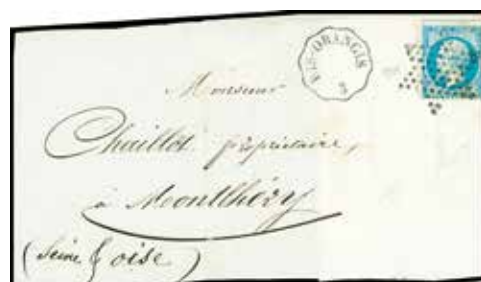 RIS-ORANGIS
3
Monsieur
Chaillot propriétaire,
à Montlhéry
(Seine & oise)